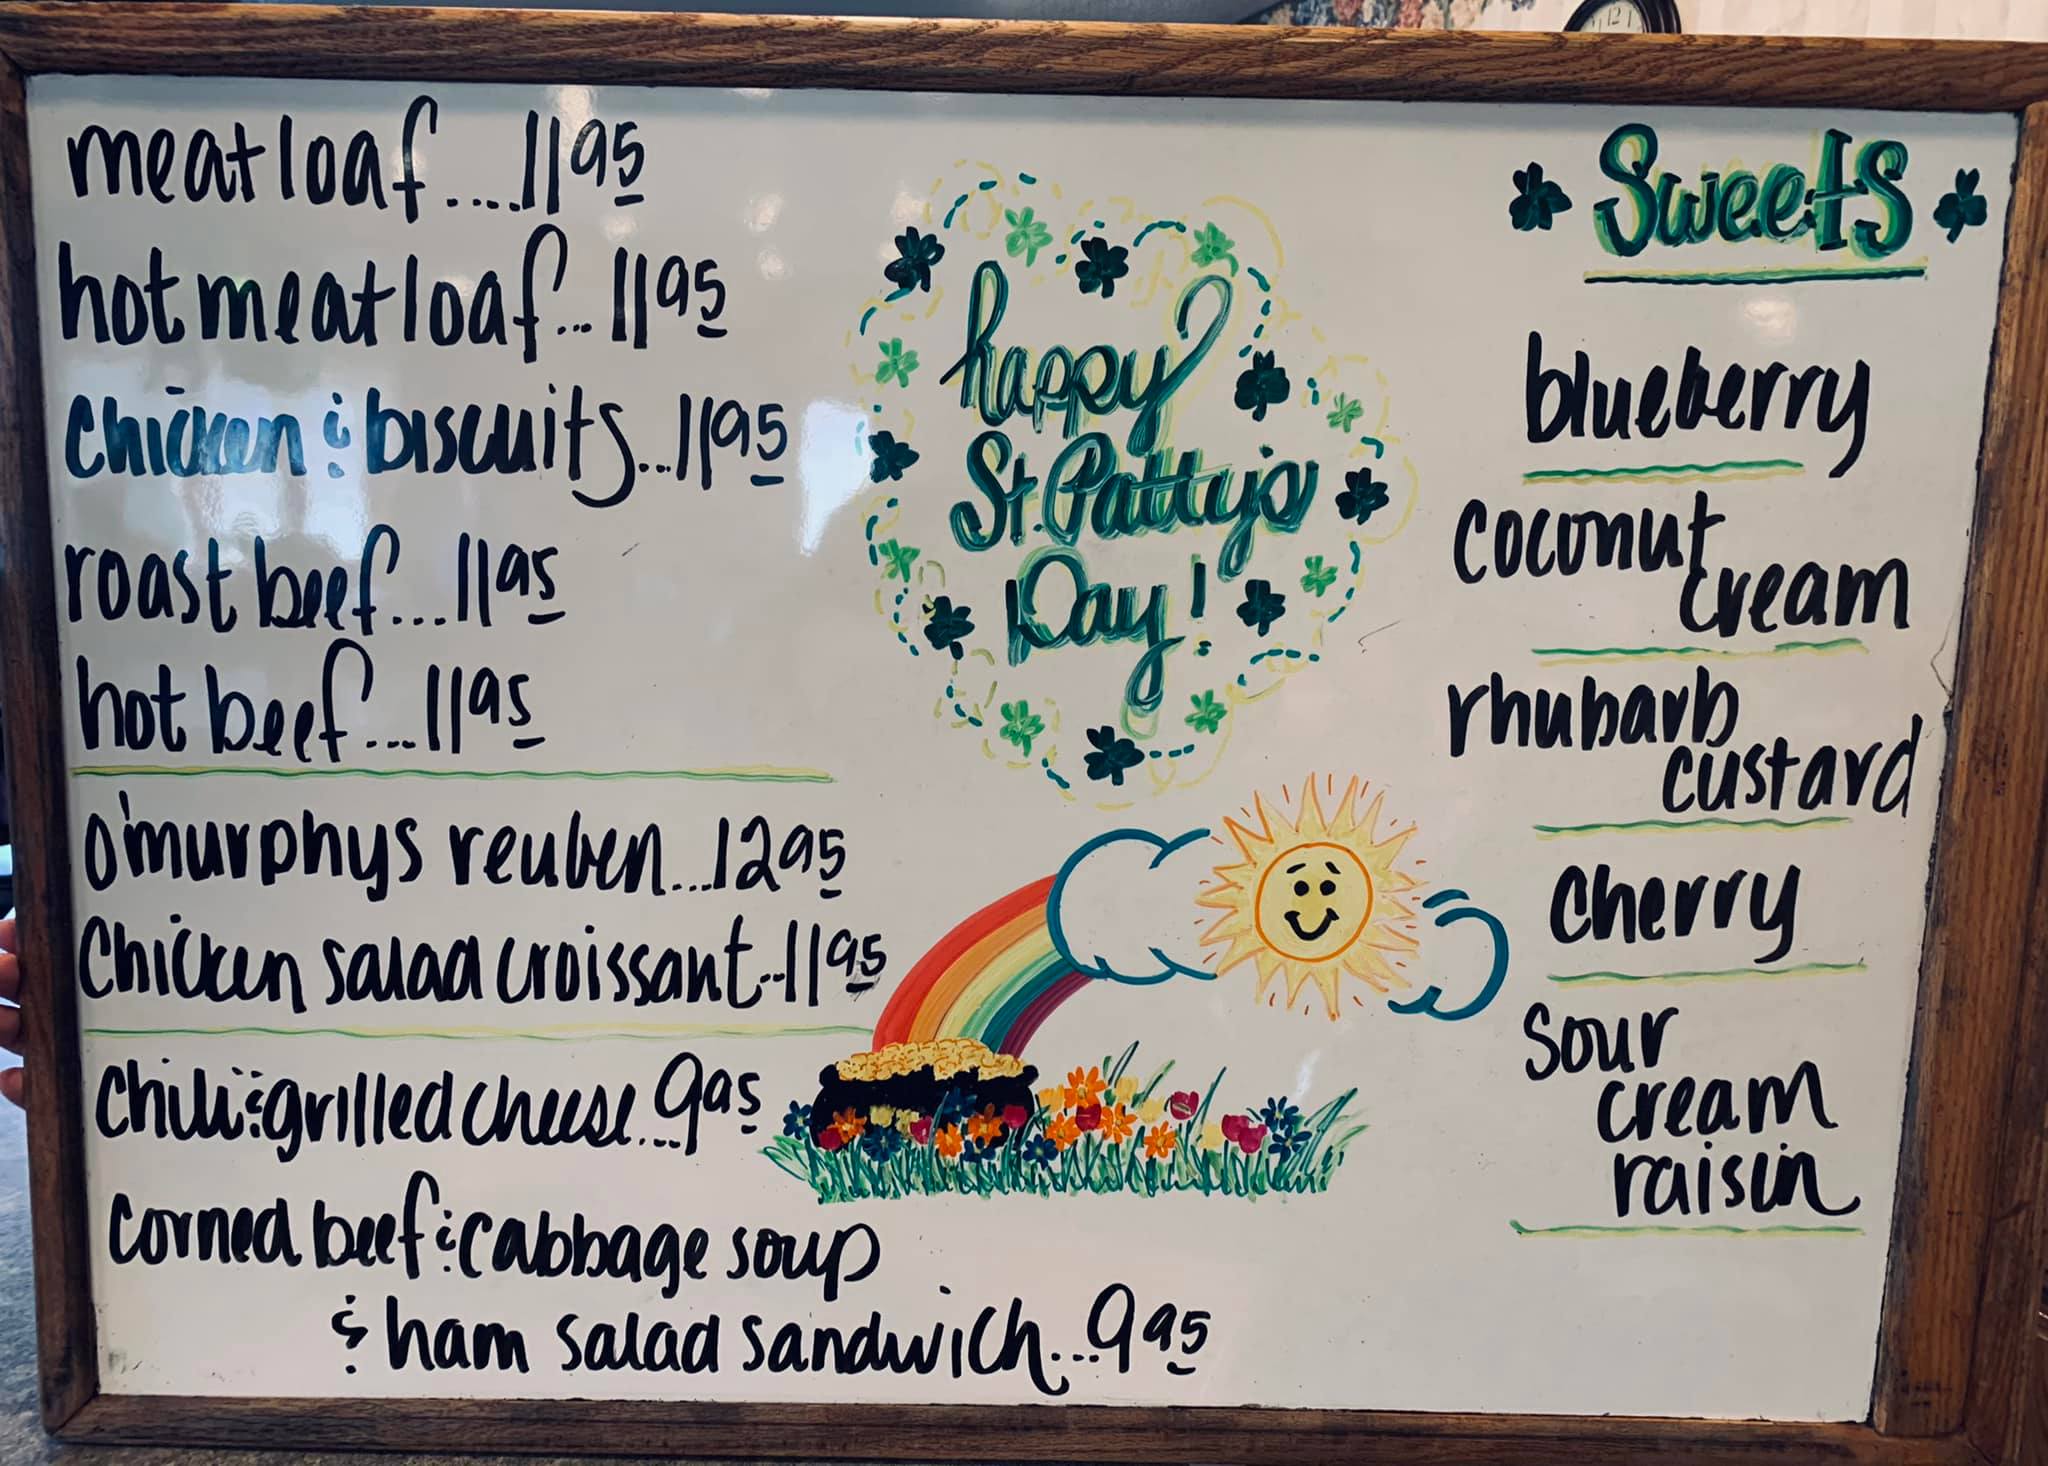 meatloaf....11 95
hot meatloaf...11 95
chicken & biscuits...11 95
roast beef....11 95
hot beef....11 95
o'murphys reuben...12 95
chicken salad croissant..11 95
chili & grilled cheese...9 95
corned beef & cabbage soup
& ham salad sandwich...9 95
happy
St. Patty's
Day!
Sweets
blueberry
coconut
cream
rhubarb
custard
cherry
sour
cream
raisin
12